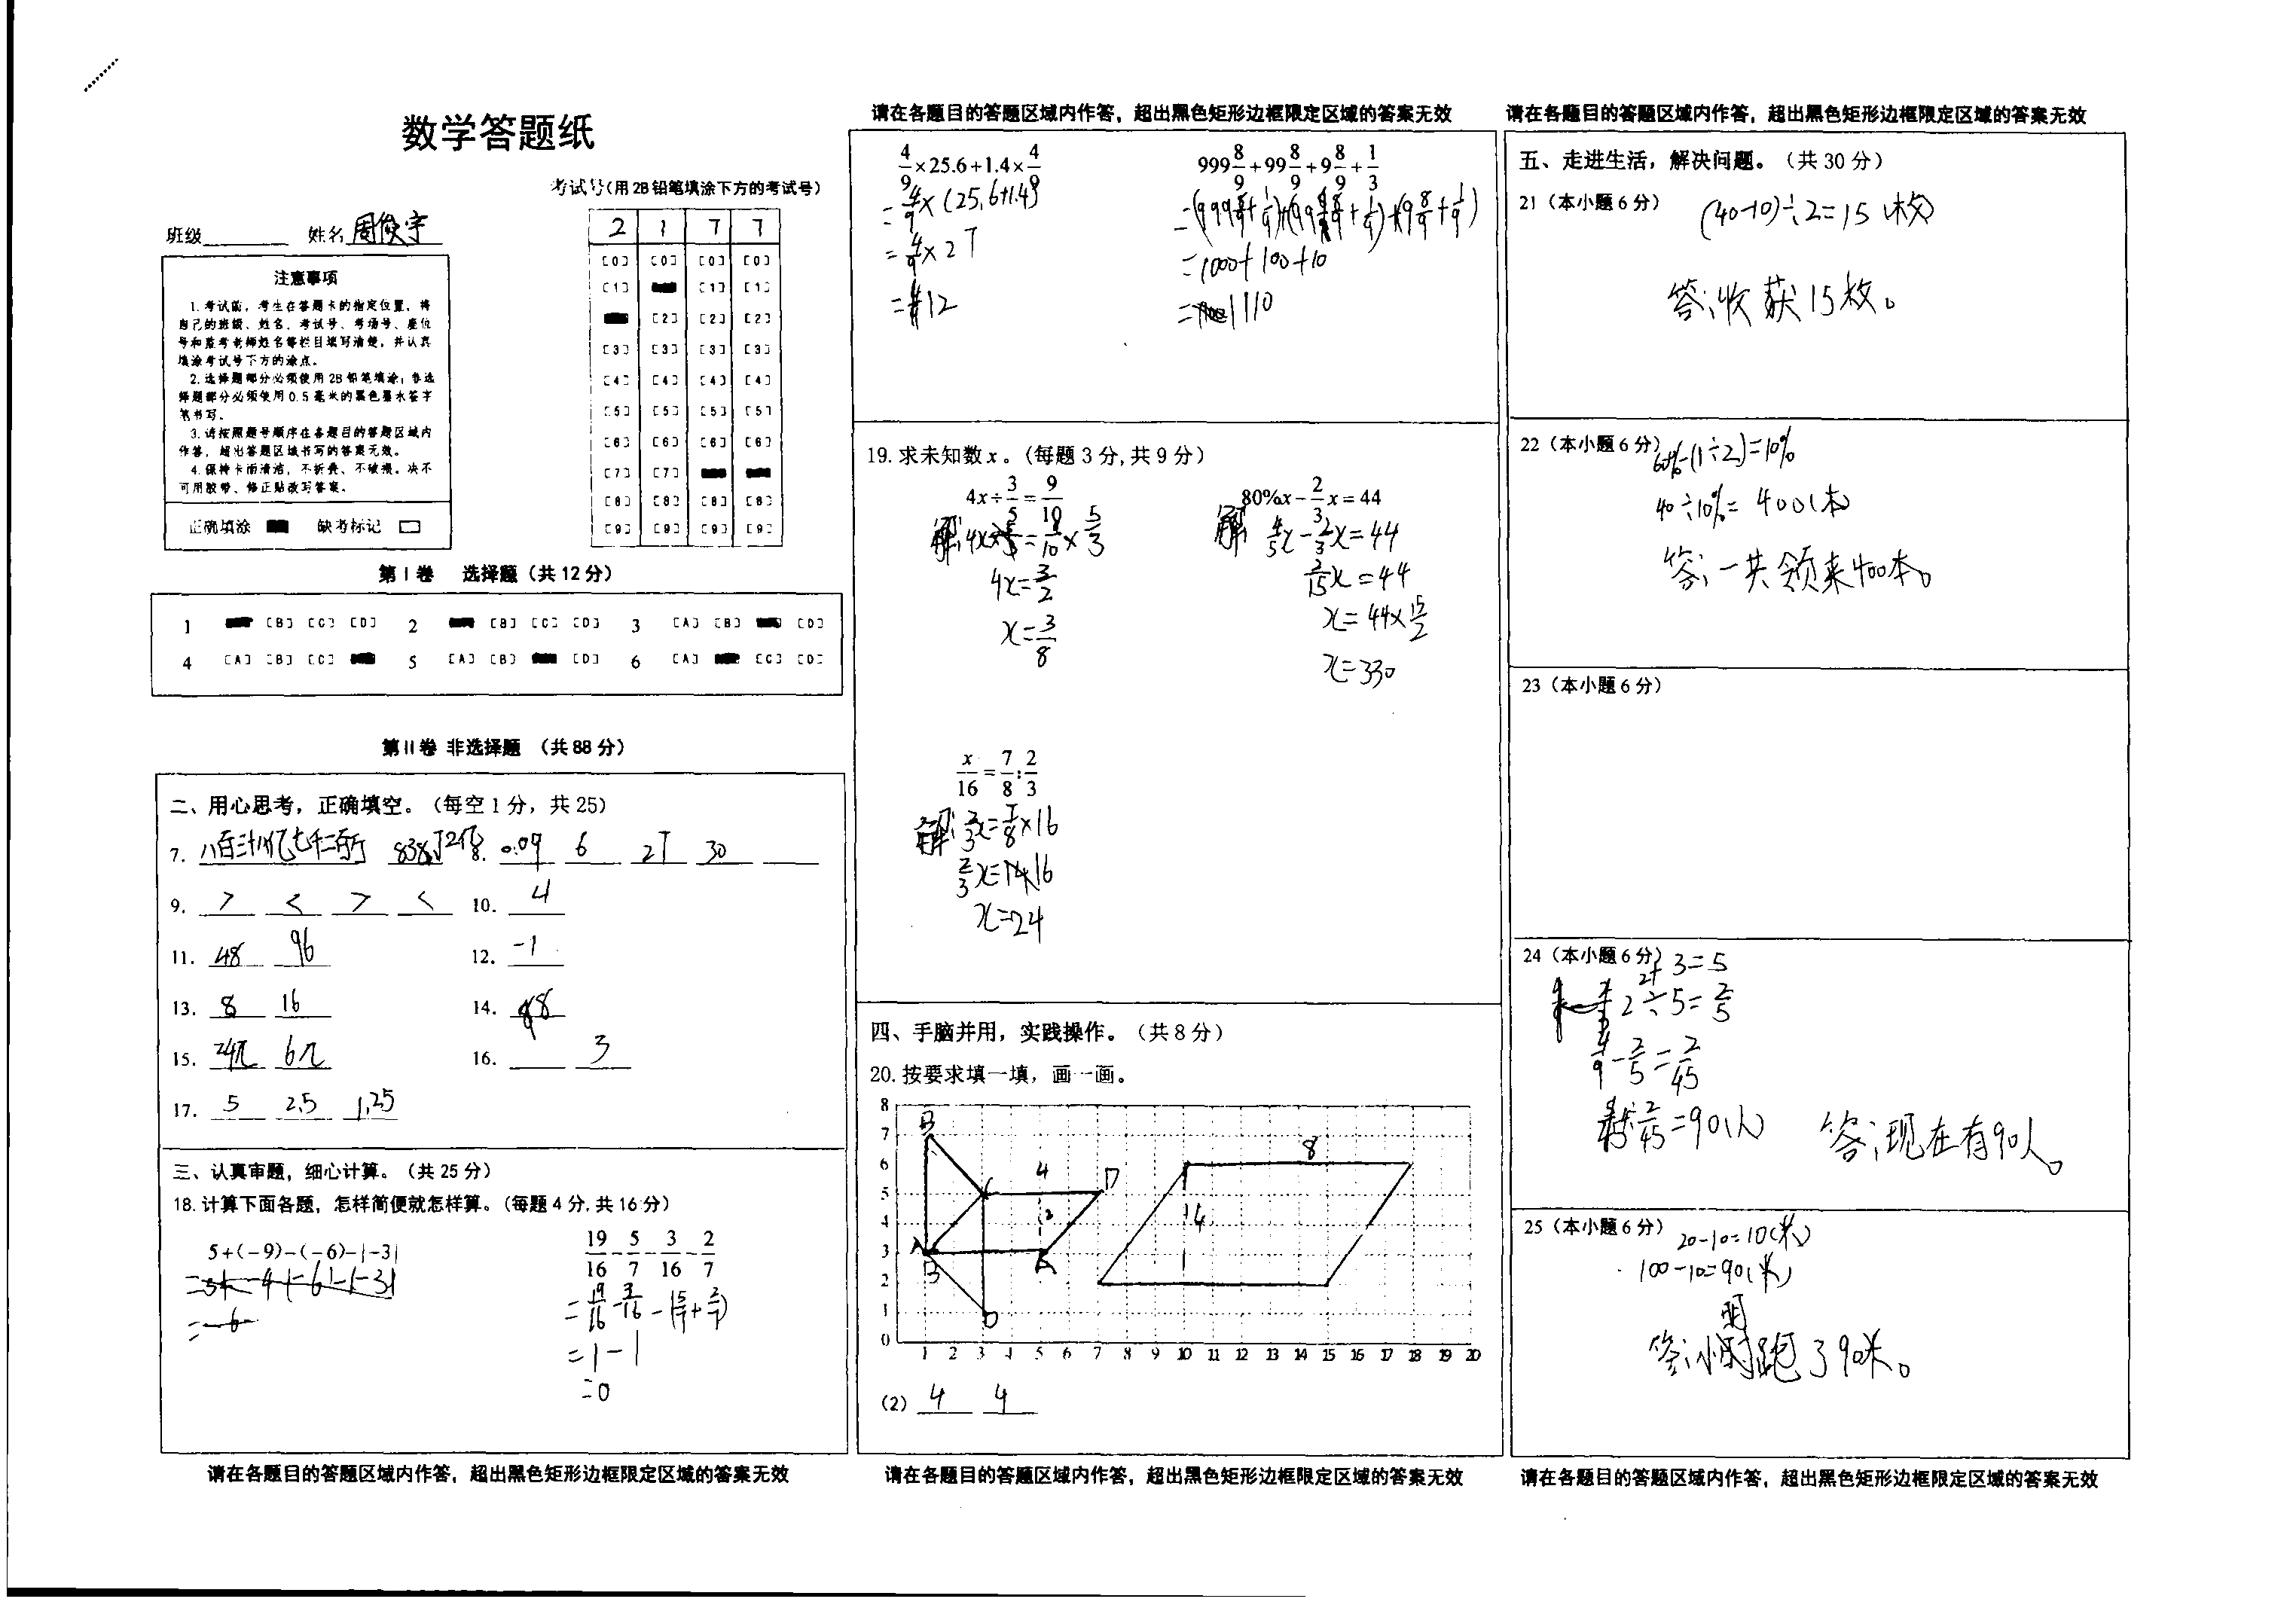 数学答题纸
考试号(用2B铅笔填涂下方的考试号)
班级 姓名 周俊宇
2 1 7 7
[0] [0] [0] [0]
[1] [1] [1]
[2] [2] [2]
[3] [3] [3] [3]
[4] [4] [4] [4]
[5] [5] [5] [5]
[6] [6] [6] [6]
[7] [7]
[8] [8] [8] [8]
[9] [9] [9] [9]
注意事项
1.考试前,考生在答题卡的指定位置,将
自己的班级、姓名、考试号、考场号、座位
号和监考老师姓名等栏目填写清楚,并认真
填涂考试号下方的涂点。
2.选择题部分必须使用2B铅笔填涂;非选
择题部分必须使用0.5毫米的黑色墨水签字
笔书写。
3.请按照题号顺序在各题目的答题区域内
作答,超出答题区域书写的答案无效。
4.保持卡面清洁,不折叠、不破损。决不
可用胶带、修正贴改写答案。
正确填涂 缺考标记
第Ⅰ卷 选择题(共12分)
1 [B] [C] [D] 2 [B] [C] [D] 3 [A] [B] [D]
4 [A] [B] [C] 5 [A] [B] [D] 6 [A] [C] [D]
第Ⅱ卷 非选择题 (共88分)
二、用心思考,正确填空。(每空1分,共25)
7. 8. 0.09 6 27 30
9. > < > < 10. 4
11. 48 96 12. -1
13. 8 16 14.
15. 24π 6π 16. 3
17. 5 2.5 1.25
三、认真审题,细心计算。(共25分)
18.计算下面各题,怎样简便就怎样算。(每题4分,共16分)
5+(-9)-(-6)-|-3| 19/16-5/7-3/16-2/7
=19/16-3/16-(5/7+2/7)
=1-1
=0
请在各题目的答题区域内作答,超出黑色矩形边框限定区域的答案无效
请在各题目的答题区域内作答,超出黑色矩形边框限定区域的答案无效
4/9×25.6+1.4×4/9 999 8/9+99 8/9+9 8/9+1/3
=4/9×(25.6+1.4) =(999 8/9+1/9)+(99 8/9+1/9)+(9 8/9+1/9)
=4/9×27 =1000+100+10
=12 =1110
19.求未知数x。(每题3分,共9分)
4x÷3/5=9/10 80%x-2/3x=44
解: =9/10×5/3 解 4/5x-2/3x=44
4x=3/2 2/15x=44
x=3/8 x=44×15/2
x=330
x/16=7/8:2/3
解:2/3x=7/8×16
x=24
四、手脑并用,实践操作。(共8分)
20.按要求填一填,画一画。
8
7 B
6 4 8
5 C D
4 2 4
3 A
2 B
1 D
0 1 2 3 4 5 6 7 8 9 10 11 12 13 14 15 16 17 18 19 20
(2) 4 4
请在各题目的答题区域内作答,超出黑色矩形边框限定区域的答案无效
请在各题目的答题区域内作答,超出黑色矩形边框限定区域的答案无效
五、走进生活,解决问题。(共30分)
21(本小题6分) (40-10)÷2=15(枚)
答:收获15枚。
22(本小题6分) 60%-(1÷2)=10%
40÷10%=400(本)
答:一共领来400本。
23(本小题6分)
24(本小题6分) 2+3=5
2÷5=2/5
4/9-2/5=2/45
=90(人) 答:现在有90人。
25(本小题6分) 20-10=10(米)
100-10=90(米)
答:小明跑了90米。
请在各题目的答题区域内作答,超出黑色矩形边框限定区域的答案无效